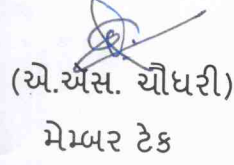 (એ.એસ. ચૌધરી)
મેમ્બર ટેક